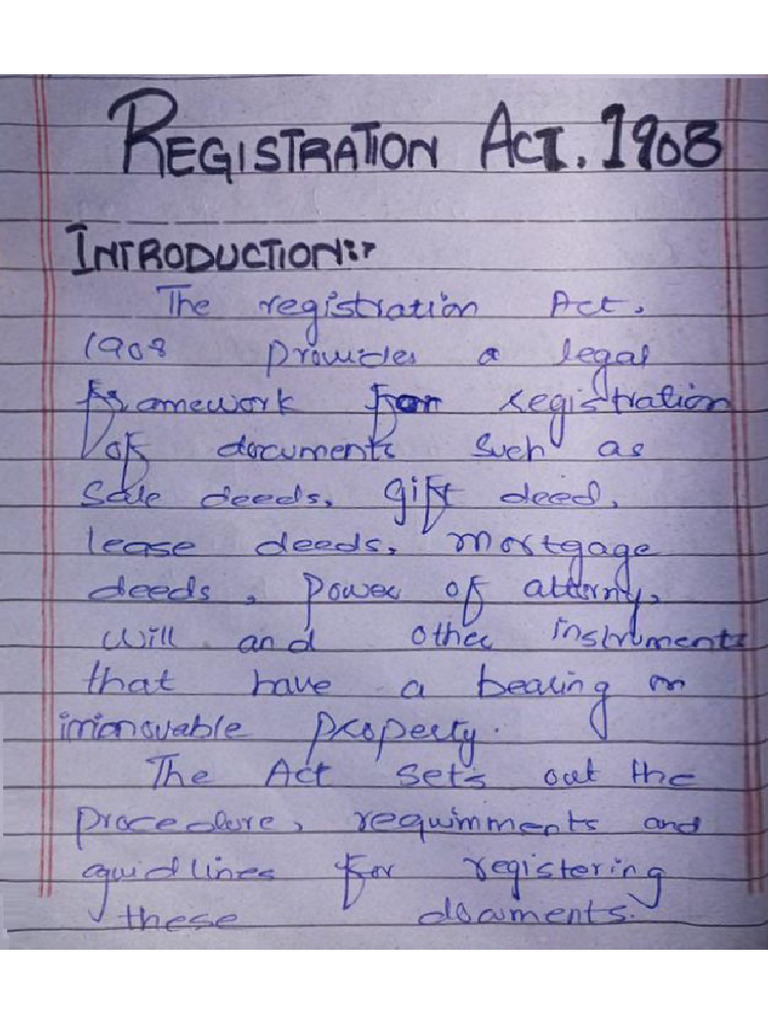 REGISTRATION ACT. 1908
INTRODUCTION:-
The registration Act,
1908 provides a legal
framework for registration
of documents such as
Sale deeds, gift deed,
lease deeds, mortgage
deeds, power of attorny,
will and other instruments
that have a bearing on
immovable property.
The Act sets out the
procedure, requirnments and
guidlines for registering
these documents.